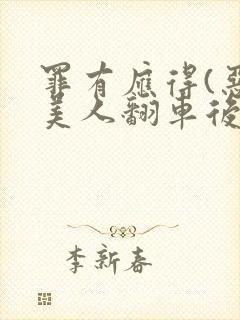 罪有應得(惡
美人翻車後
李新春